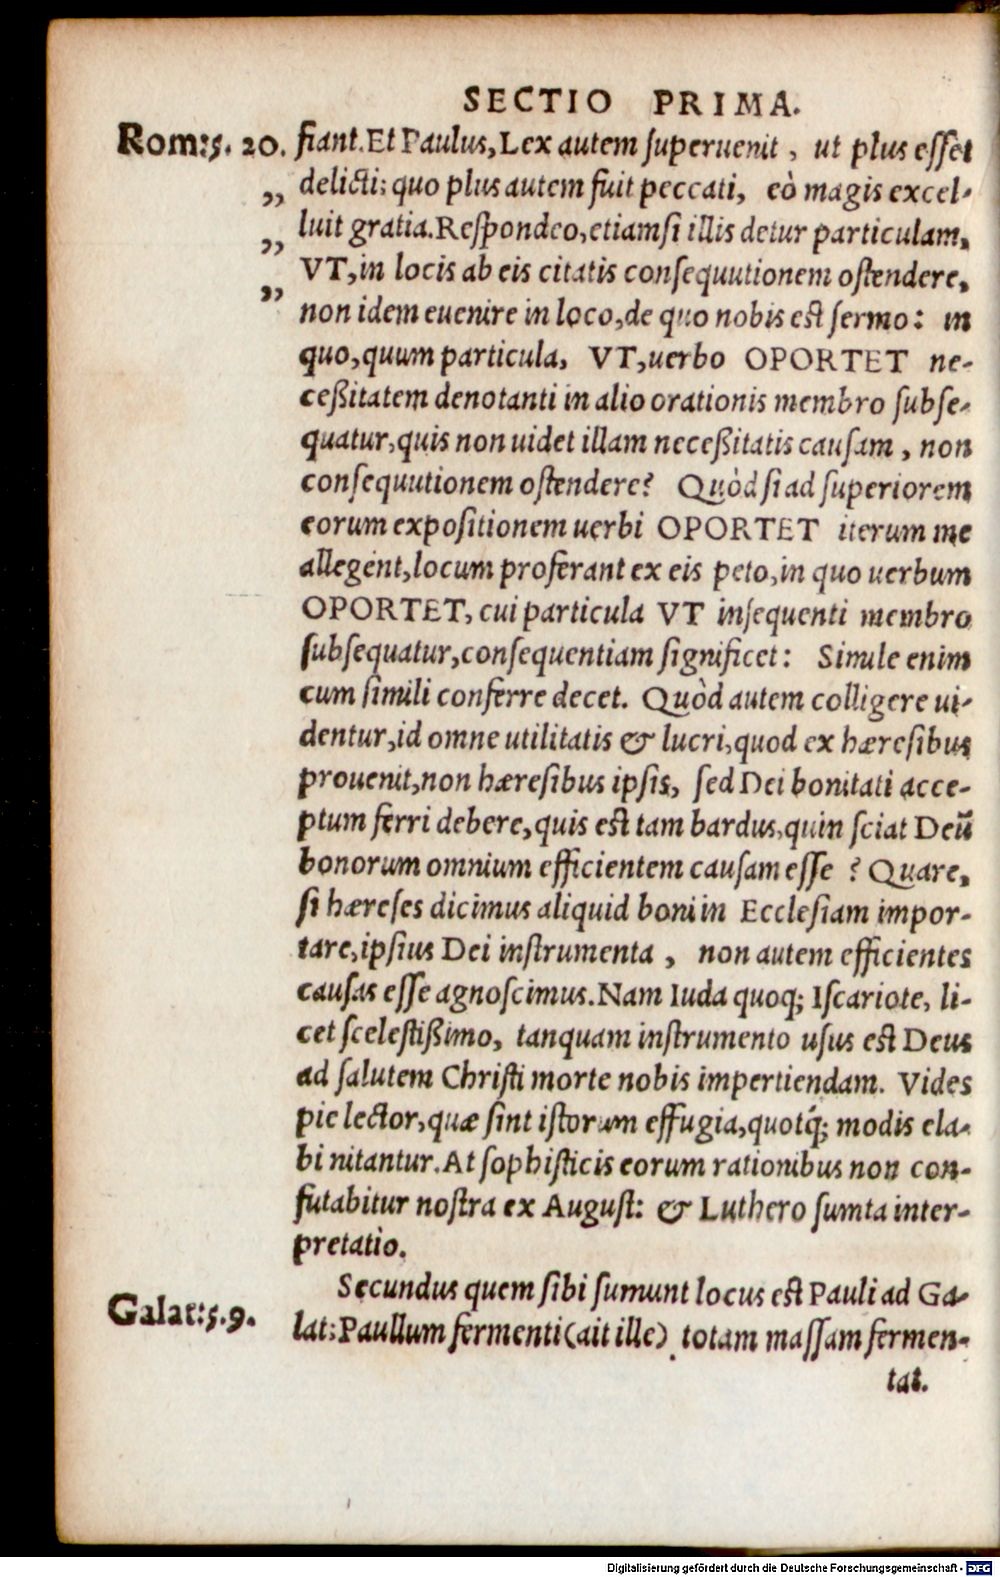 SECTIO PRIMA.
Rom:5. 20. fiant. Et Paulus, Lex autem superuenit, ut plus esset
„ delicti; quo plus autem fuit peccati, eò magis excel-
„ luit gratia. Respondeo, etiamsi illis detur particulam,
„ VT, in locis ab eis citatis consequutionem ostendere,
non idem euenire in loco, de quo nobis est sermo: in
quo, quum particula, VT, uerbo OPORTET ne-
ceßitatem denotanti in alio orationis membro subse-
quatur, quis non uidet illam neceßitatis causam, non
consequutionem ostendere? Quòd si ad superiorem
eorum expositionem uerbi OPORTET iterum me
allegent, locum proferant ex eis peto, in quo uerbum
OPORTET, cui particula VT insequenti membro
subsequatur, consequentiam significet: Simile enim
cum simili conferre decet. Quòd autem colligere ui-
dentur, id omne utilitatis & lucri, quod ex hæresibus
prouenit, non hæresibus ipsis, sed Dei bonitati acce-
ptum ferri debere, quis est tam bardus, quin sciat Deū
bonorum omnium efficientem causam esse? Quare,
si hæreses dicimus aliquid boni in Ecclesiam impor-
tare, ipsius Dei instrumenta, non autem efficientes
causas esse agnoscimus. Nam Iuda quoq; Iscariote, li-
cet scelestißimo, tanquam instrumento usus est Deus
ad salutem Christi morte nobis impertiendam. Vides
pie lector, quæ sint istorum effugia, quotq́; modis ela-
bi nitantur. At sophisticis eorum rationibus non con-
futabitur nostra ex August: & Luthero sumta inter-
pretatio.
Secundus quem sibi sumunt locus est Pauli ad Ga-
Galat:5.9. lat: Paullum fermenti (ait ille) totam massam fermen-
tat.
Digitalisierung gefördert durch die Deutsche Forschungsgemeinschaft - DFG